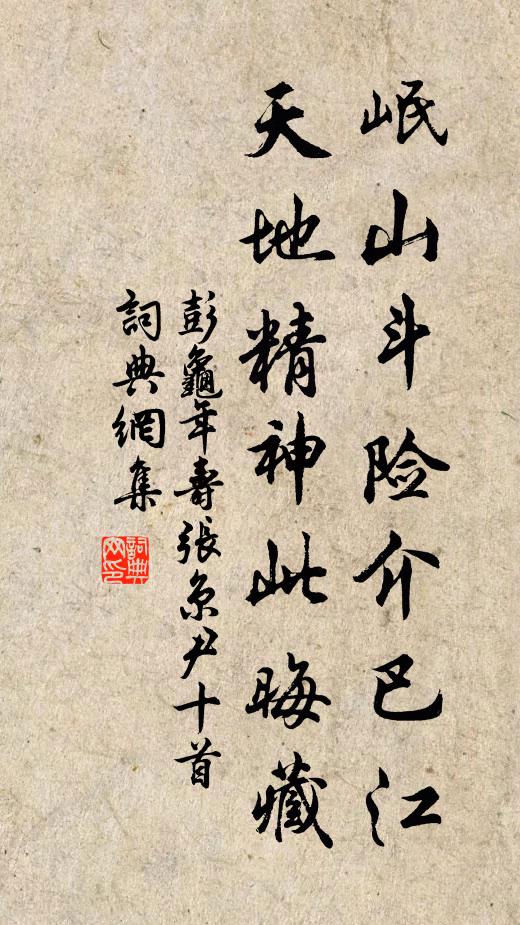 岷山斗险介巴江
天地精神此晦藏
彭龜年壽張京尹十首
詞典網集
詞典網印